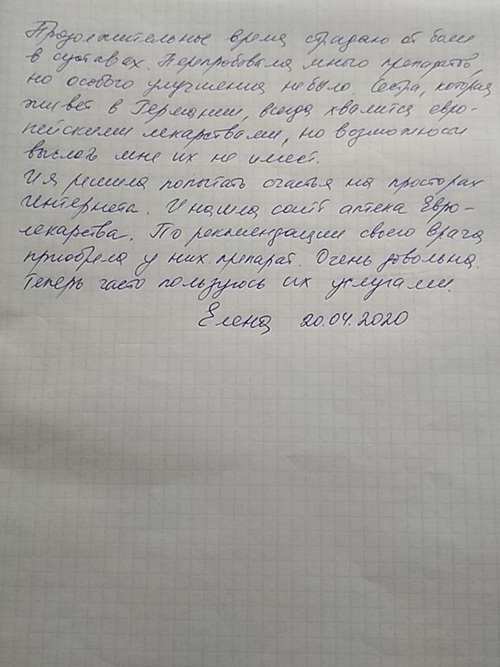 Продолжительное время страдаю от боли
в суставах. Перепробовала много препаратов,
но особого улучшения не было. Сестра, которая
живет в Германии, всегда хвалится евро-
пейскими лекарствами, но возможности
выслать мне их не имеет.
И я решила попытать счастья на просторах
Интернета. И нашла сайт аптека Евро-
лекарства. По рекомендации своего врача
приобрела у них препарат. Очень довольна.
Теперь часто пользуюсь их услугами.
Елена 20.04.2020